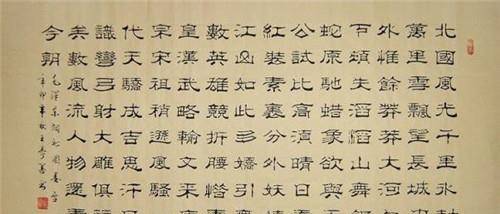 北國風光千里冰
萬里雪飄望長城
外惟餘莽莽大河
下頓失滔滔山舞
蛇原馳蠟象欲與
公試比高須晴日
紅裝素裹分外
江山如此多嬌引
數英雄競折腰
皇漢武略輸文
宗宋祖稍遜風騷
代天驕成吉思汗
識彎弓射大雕俱
矣數風流人物還
今朝
毛澤東詞沁園春雪